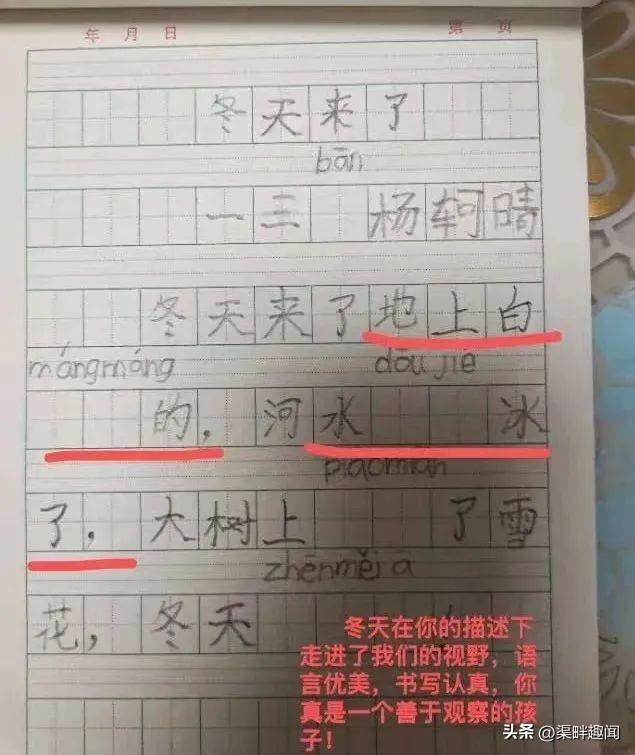 年 月 日 第 页
冬天来了
bān
一三 杨轲晴
冬天来了地上白
mángmáng dōu jié
的，河水 冰
piāomiǎn
了，大树上 了雪
zhēnměi a
花，冬天
冬天在你的描述下
走进了我们的视野，语
言优美，书写认真，你
真是一个善于观察的孩
子！
头条 @渠畔趣闻